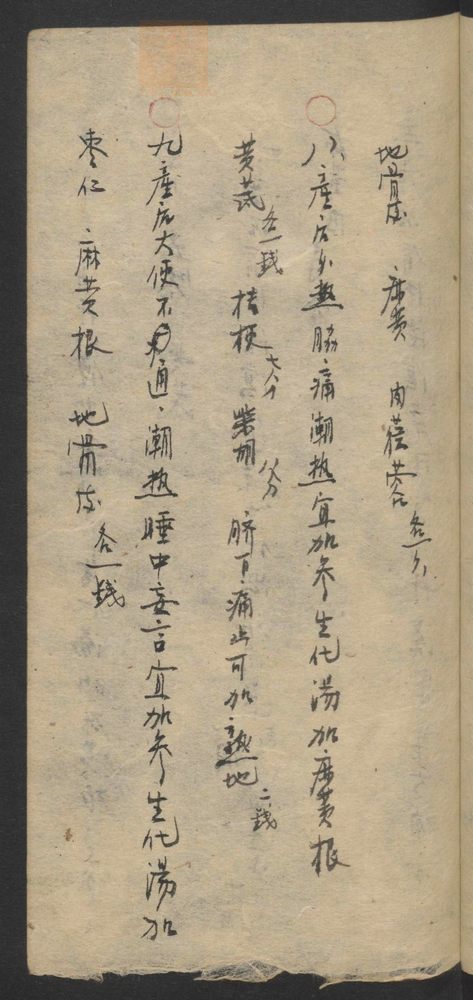 地骨皮 麻黄 肉蓯蓉 各一分
八、產后外热腸痛潮热宜加參生化湯加麻黄根
黄芪各一錢 桔梗七分 柴胡八分 臍下痛止可加熟地二錢
九產后大便不通、潮热睡中妄言宜加參生化湯加
枣仁 麻黄根 地骨皮各一錢